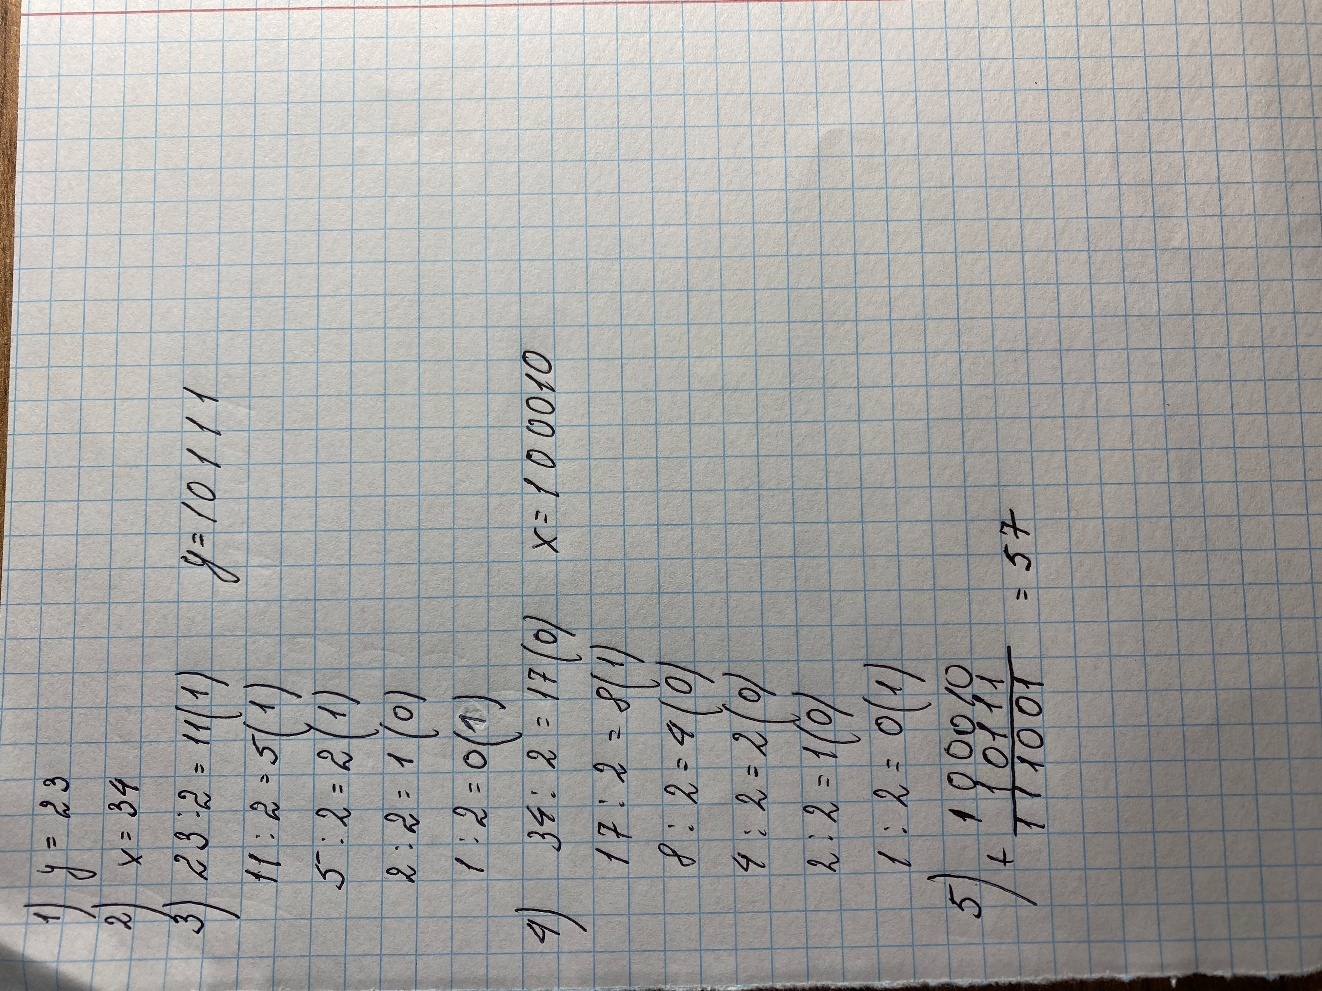 1) y = 23
2) x = 34
3) 23 : 2 = 11 (1) y = 10111
11 : 2 = 5 (1)
5 : 2 = 2 (1)
2 : 2 = 1 (0)
1 : 2 = 0 (1)
4) 34 : 2 = 17 (0) x = 100010
17 : 2 = 8 (1)
8 : 2 = 4 (0)
4 : 2 = 2 (0)
2 : 2 = 1 (0)
1 : 2 = 0 (1)
5) 100010
+ 10111
111001 = 57